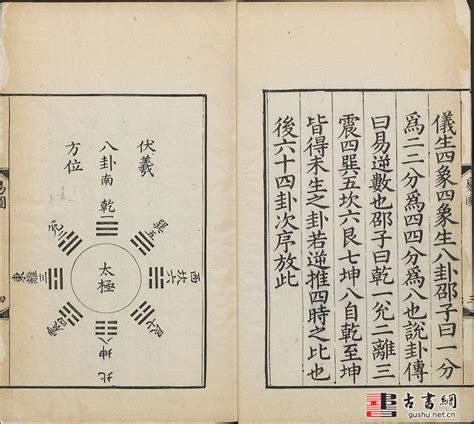 儀生四象四象生八卦邵子曰一分
爲二二分爲四四分爲八也說卦傳
曰易逆數也邵子曰乾一兊二離三
震四巽五坎六艮七坤八自乾至坤
皆得未生之卦若逆推四時之比也
後六十四卦次序放此
伏羲
八卦
方位
南
乾一
巽五
兊二
西
坎六
太極
離三
東
艮七
震四
坤八
北
易圖
四
古書網
gushu.net.cn